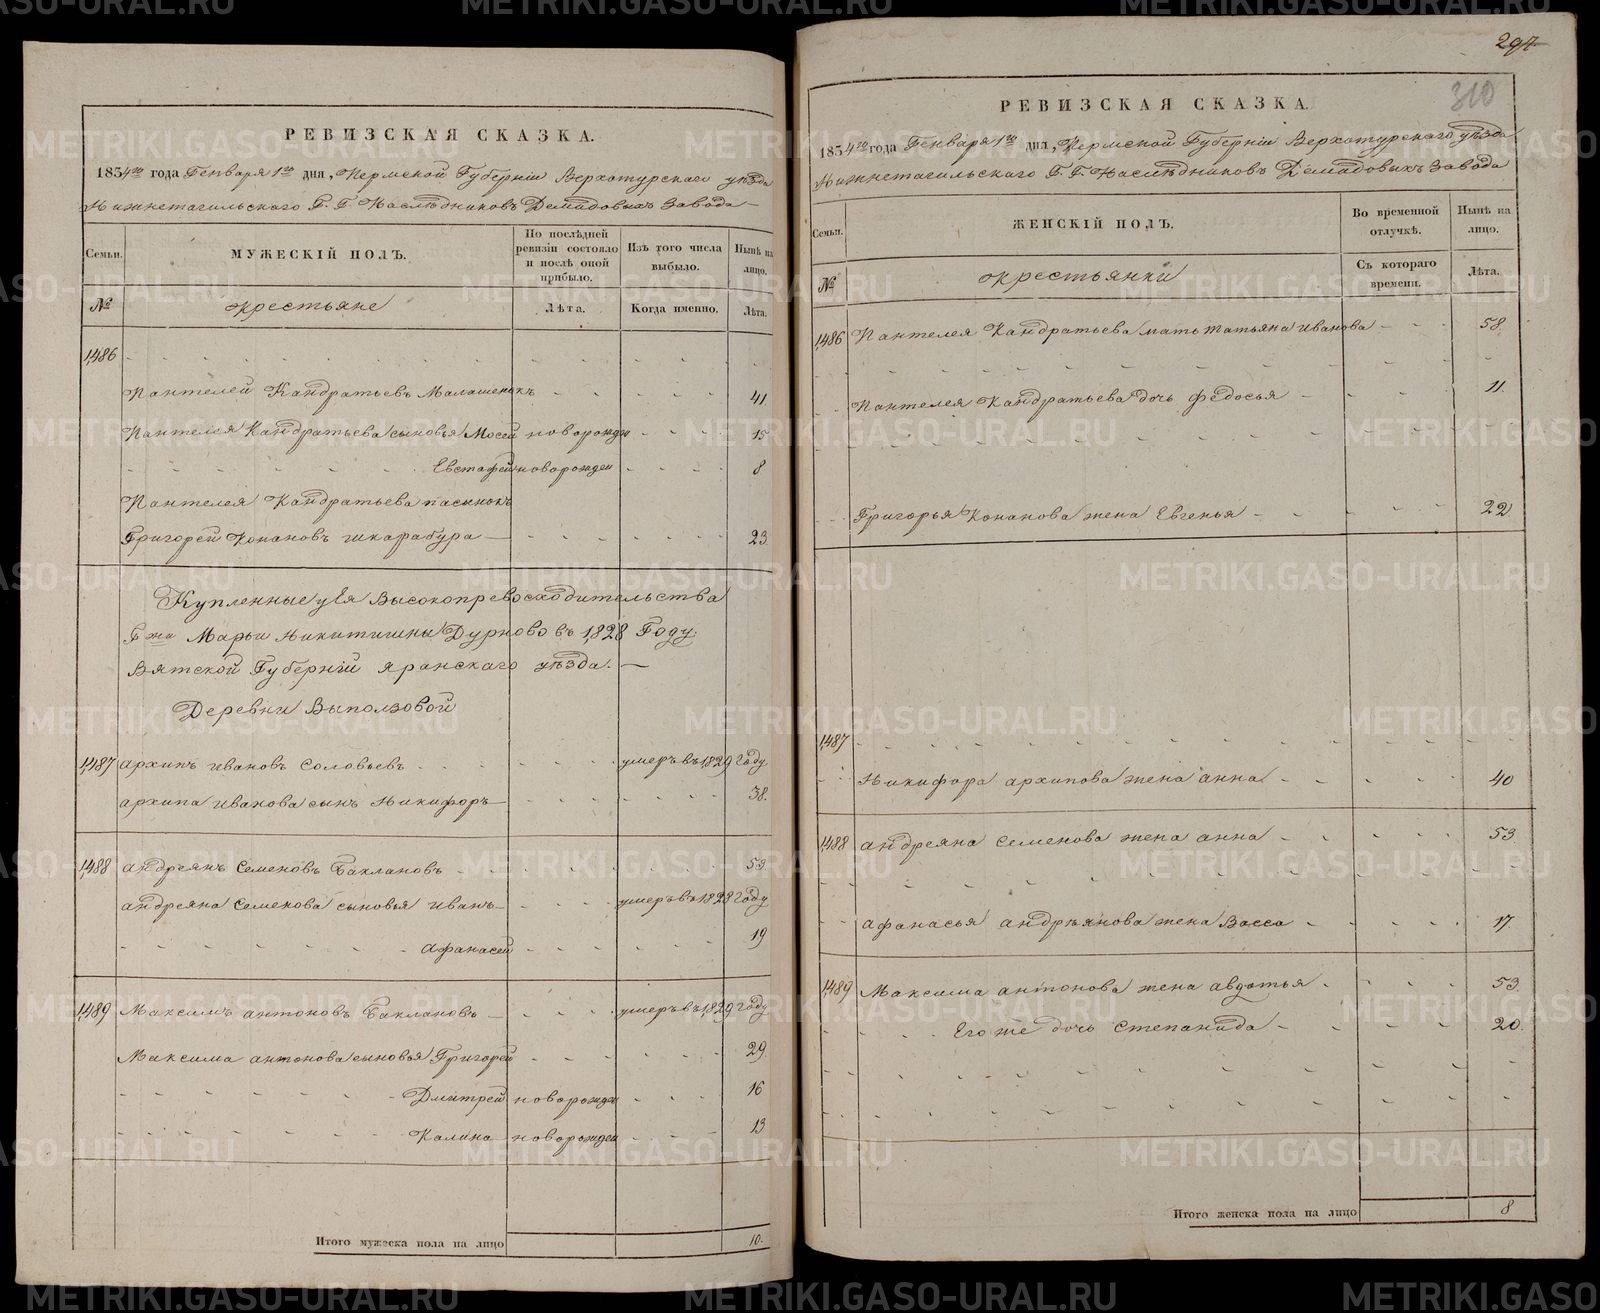 РЕВИЗСКАЯ СКАЗКА.
1834го года Генваря 1го дня, Пермской Губернiи Верхотурскаго уѣзда
Нижнетагильскаго Г. Г. Наслѣдниковъ Демидовыхъ Завода
Семьи. МУЖЕСКIЙ ПОЛЪ. По послѣдней ревизiи состояло и послѣ оной прибыло. Изъ того числа выбыло. Нынѣ на лицо.
№ Крестьяне Лѣта. Когда именно. Лѣта.
1,486
Пантелей Кандратьевъ Малашенокъ 41.
Пантелея Кандратьева сыновья Мосей новорожден 15
Евстафей новорожден 8
Пантелея Кандратьева пасынокъ
Григорей Конановъ шкарабура 23.
Купленные у Ея Высокопревосходительства
Гжи Марьи Никитишны Дурново въ 1,828 Году
Вятской Губернiи яранскаго уѣзда.
Деревни Выползовой
1,487 архипъ ивановъ Соловьевъ умеръ въ 1,829 Году
архипа иванова сынъ Никифоръ 38.
1,488 андреянъ Семеновъ Баклановъ 53.
андреяна Семенова сыновья иванъ умеръ въ 1828 Году
Афанасей 19
1,489 Максимъ антоновъ Баклановъ умеръ въ 1,829 Году
Максима антонова сыновья Григорей 29.
Дмитрей новорожден 16
Калина новорожден 13
Итого мужеска пола на лицо 10.
297
310
РЕВИЗСКАЯ СКАЗКА.
1834го года Генваря 1го дня, Пермской Губернiи Верхотурскаго уѣзда
Нижнетагильскаго Г. Г. Наслѣдниковъ Демидовыхъ Завода
Семьи. ЖЕНСКIЙ ПОЛЪ. Во временной отлучкѣ. Нынѣ на лицо.
№ Крестьянки Съ котораго времени. Лѣта.
1,486 Пантелея Кандратьева мать татьяна иванова 58.
Пантелея Кандратьева дочь федосья 11.
Григорья Конанова жена Евгенья 22
1,487
Никифора архипова жена анна 40
1,488 андреяна Семенова жена анна 53
афанасья андреянова жена Васса 17.
1,489 Максима антонова жена авдотья 53
Его же дочь степанида 20.
Итого женска пола на лицо 8
METRIKI.GASO-URAL.RU